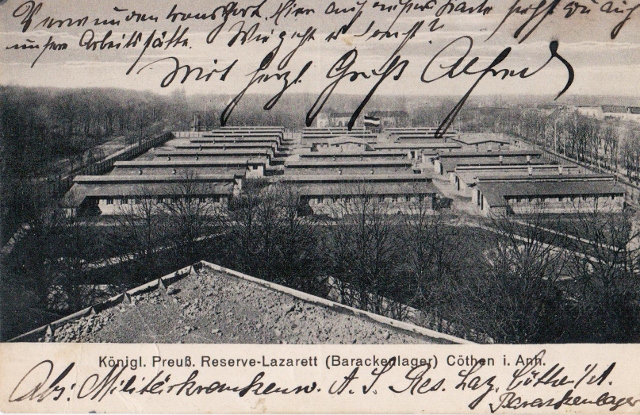 Verwundetentransport. Hier auf dieser Karte siehst Du auch
unsere Arbeitsstätte. Wie geht es sonst?
Mit herzl. Gruß Alfred
Königl. Preuß. Reserve-Lazarett (Barackenlager) Cöthen i. Anh.
Abs: Militärkrankenw. A. S. Res. Laz. Cöthen i/A.
Barackenlager